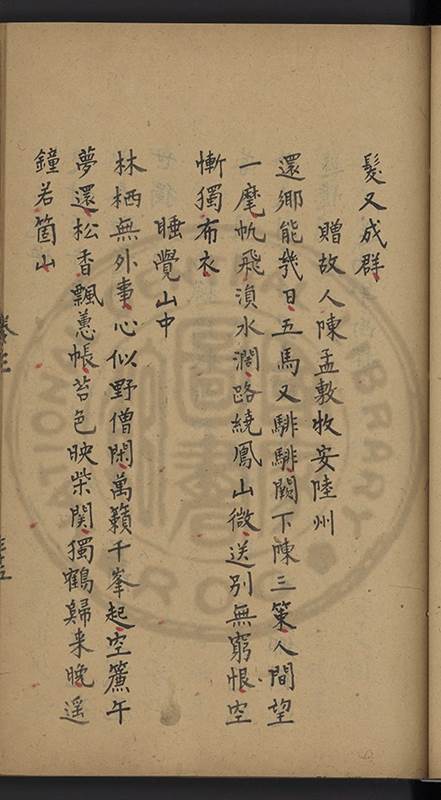 髮又成群
贈故人陳孟敷牧安陸州
還鄉能幾日五馬又騑騑闕下陳三策人間望
一麾帆飛湞水濶路繞鳳山微送别無窮恨空
慚獨布衣
睡覺山中
林栖無外事心似野僧閑萬籟千峯起空簾午
夢還松香飄蕙帳苔色映柴関獨鶴歸来晚遥
鐘若箇山